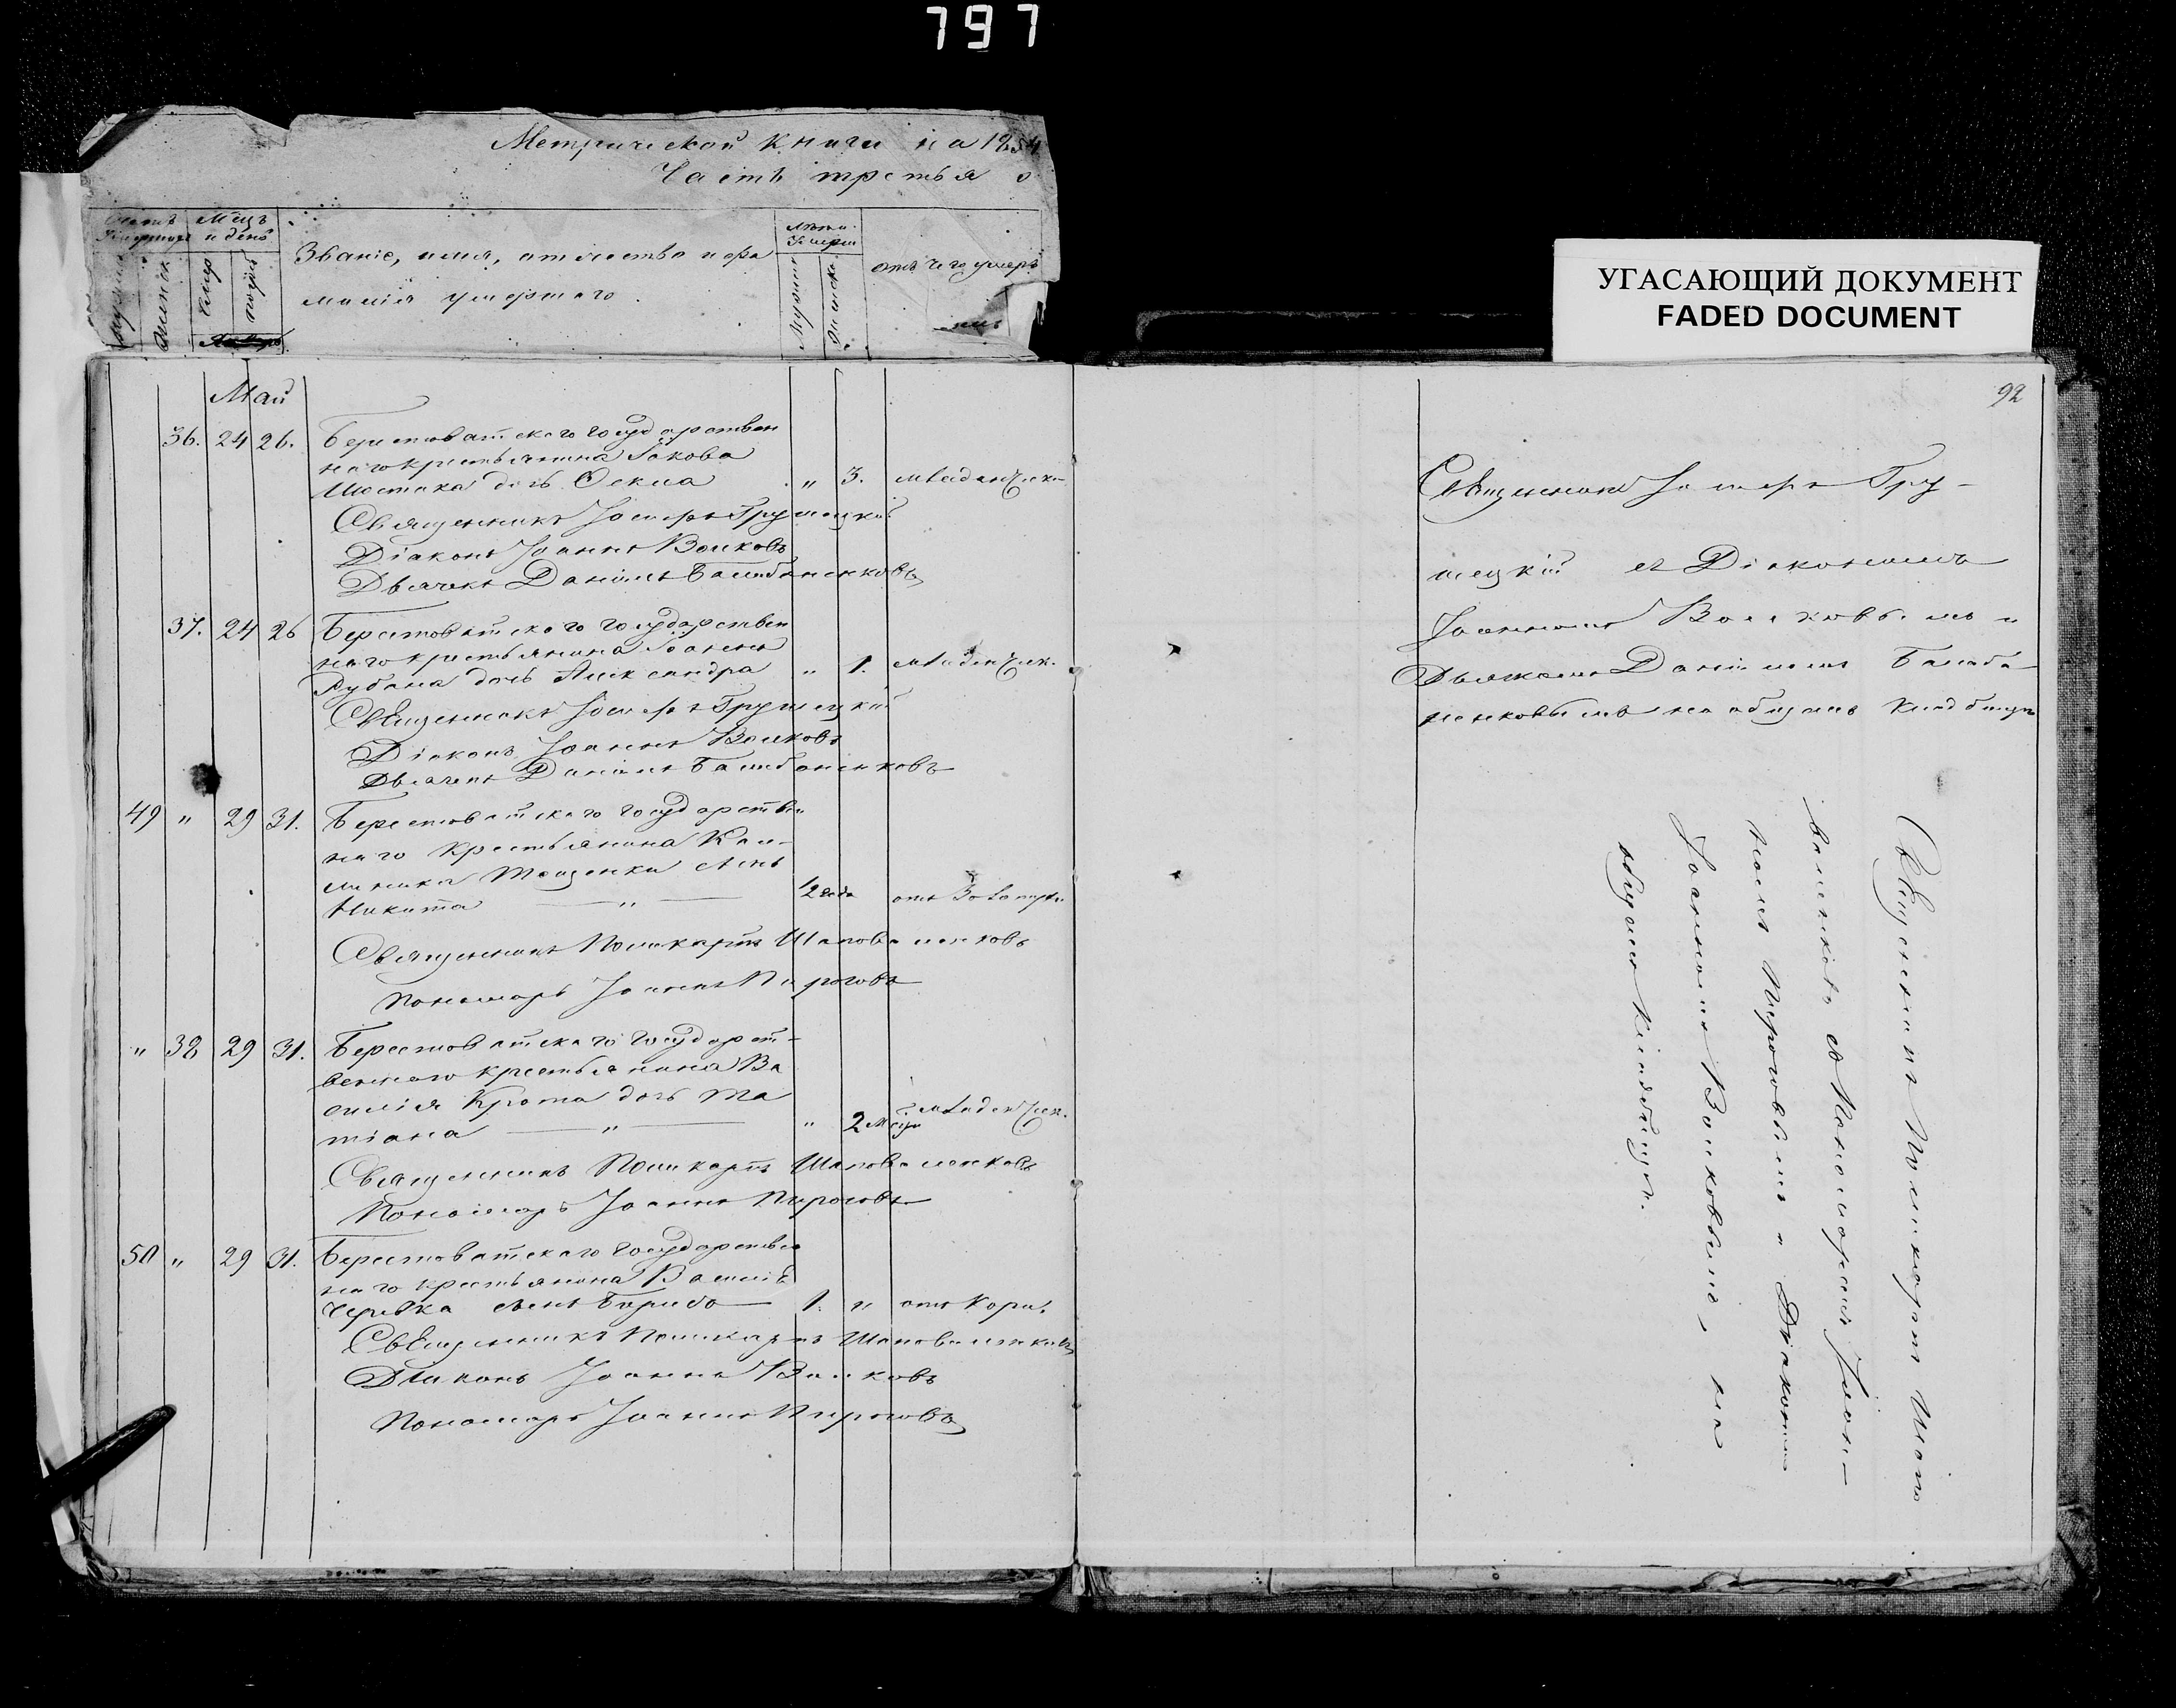 797
Метрической книги на 1854
Часть третья о
Мѣсцъ и день
Званіе, имя, отчество и фа
милія умершаго.
отъ чего умеръ
УГАСАЮЩИЙ ДОКУМЕНТ
FADED DOCUMENT
92
Май
36. 24 26. Берестоватскаго государствен
наго крестьянина Іакова
Шостака дочь Фекла " 3. младенческ.
Священникъ Іосифъ Грушецкій
Діаконъ Іоаннъ Волковъ
Дьячекъ Даніилъ Балабаненковъ
37. 24 26 Берестоватскаго государствен
наго крестьянина Іоанна
Рубана дочь Александра " 1. младенческ.
Священникъ Іосифъ Грушецкій
Діаконъ Іоаннъ Волковъ
Дьячекъ Даніилъ Балабаненковъ
49 " 29 31. Берестоватскаго государствен
наго крестьянина Кал-
линика Тещенки сынъ
Никита — " — 1/2 года отъ Золотухи
Священникъ Поликарпъ Шаповаленковъ
Пономарь Іоаннъ Пироговъ
" 38 29 31. Берестоватскаго государст-
веннаго крестьянина Ва
силія Крота дочь Та
тіана — " — " 2 м сци младенческ.
Священникъ Поликарпъ Шаповаленковъ
Пономарь Іоаннъ Пироговъ
50 " 29 31. Берестоватскаго государствен
наго крестьянина Василія
Черевка сынъ 1. " отъ Кори.
Священникъ Поликарпъ Шаповаленковъ
Діаконъ Іоаннъ Волковъ
Пономарь Іоаннъ Пироговъ
Священникъ Іосифъ Гру-
шецкій съ Діакономъ
Іоанномъ Волковымъ и
Дьячкомъ Даніиломъ Балаба-
ненковымъ на общемъ кладбищѣ
Священникъ Поликарпъ Шапо
валенковъ съ Пономаремъ Іоан-
номъ Пироговымъ и Діакономъ
Іоанномъ Волковымъ, на
общемъ кладбищѣ.